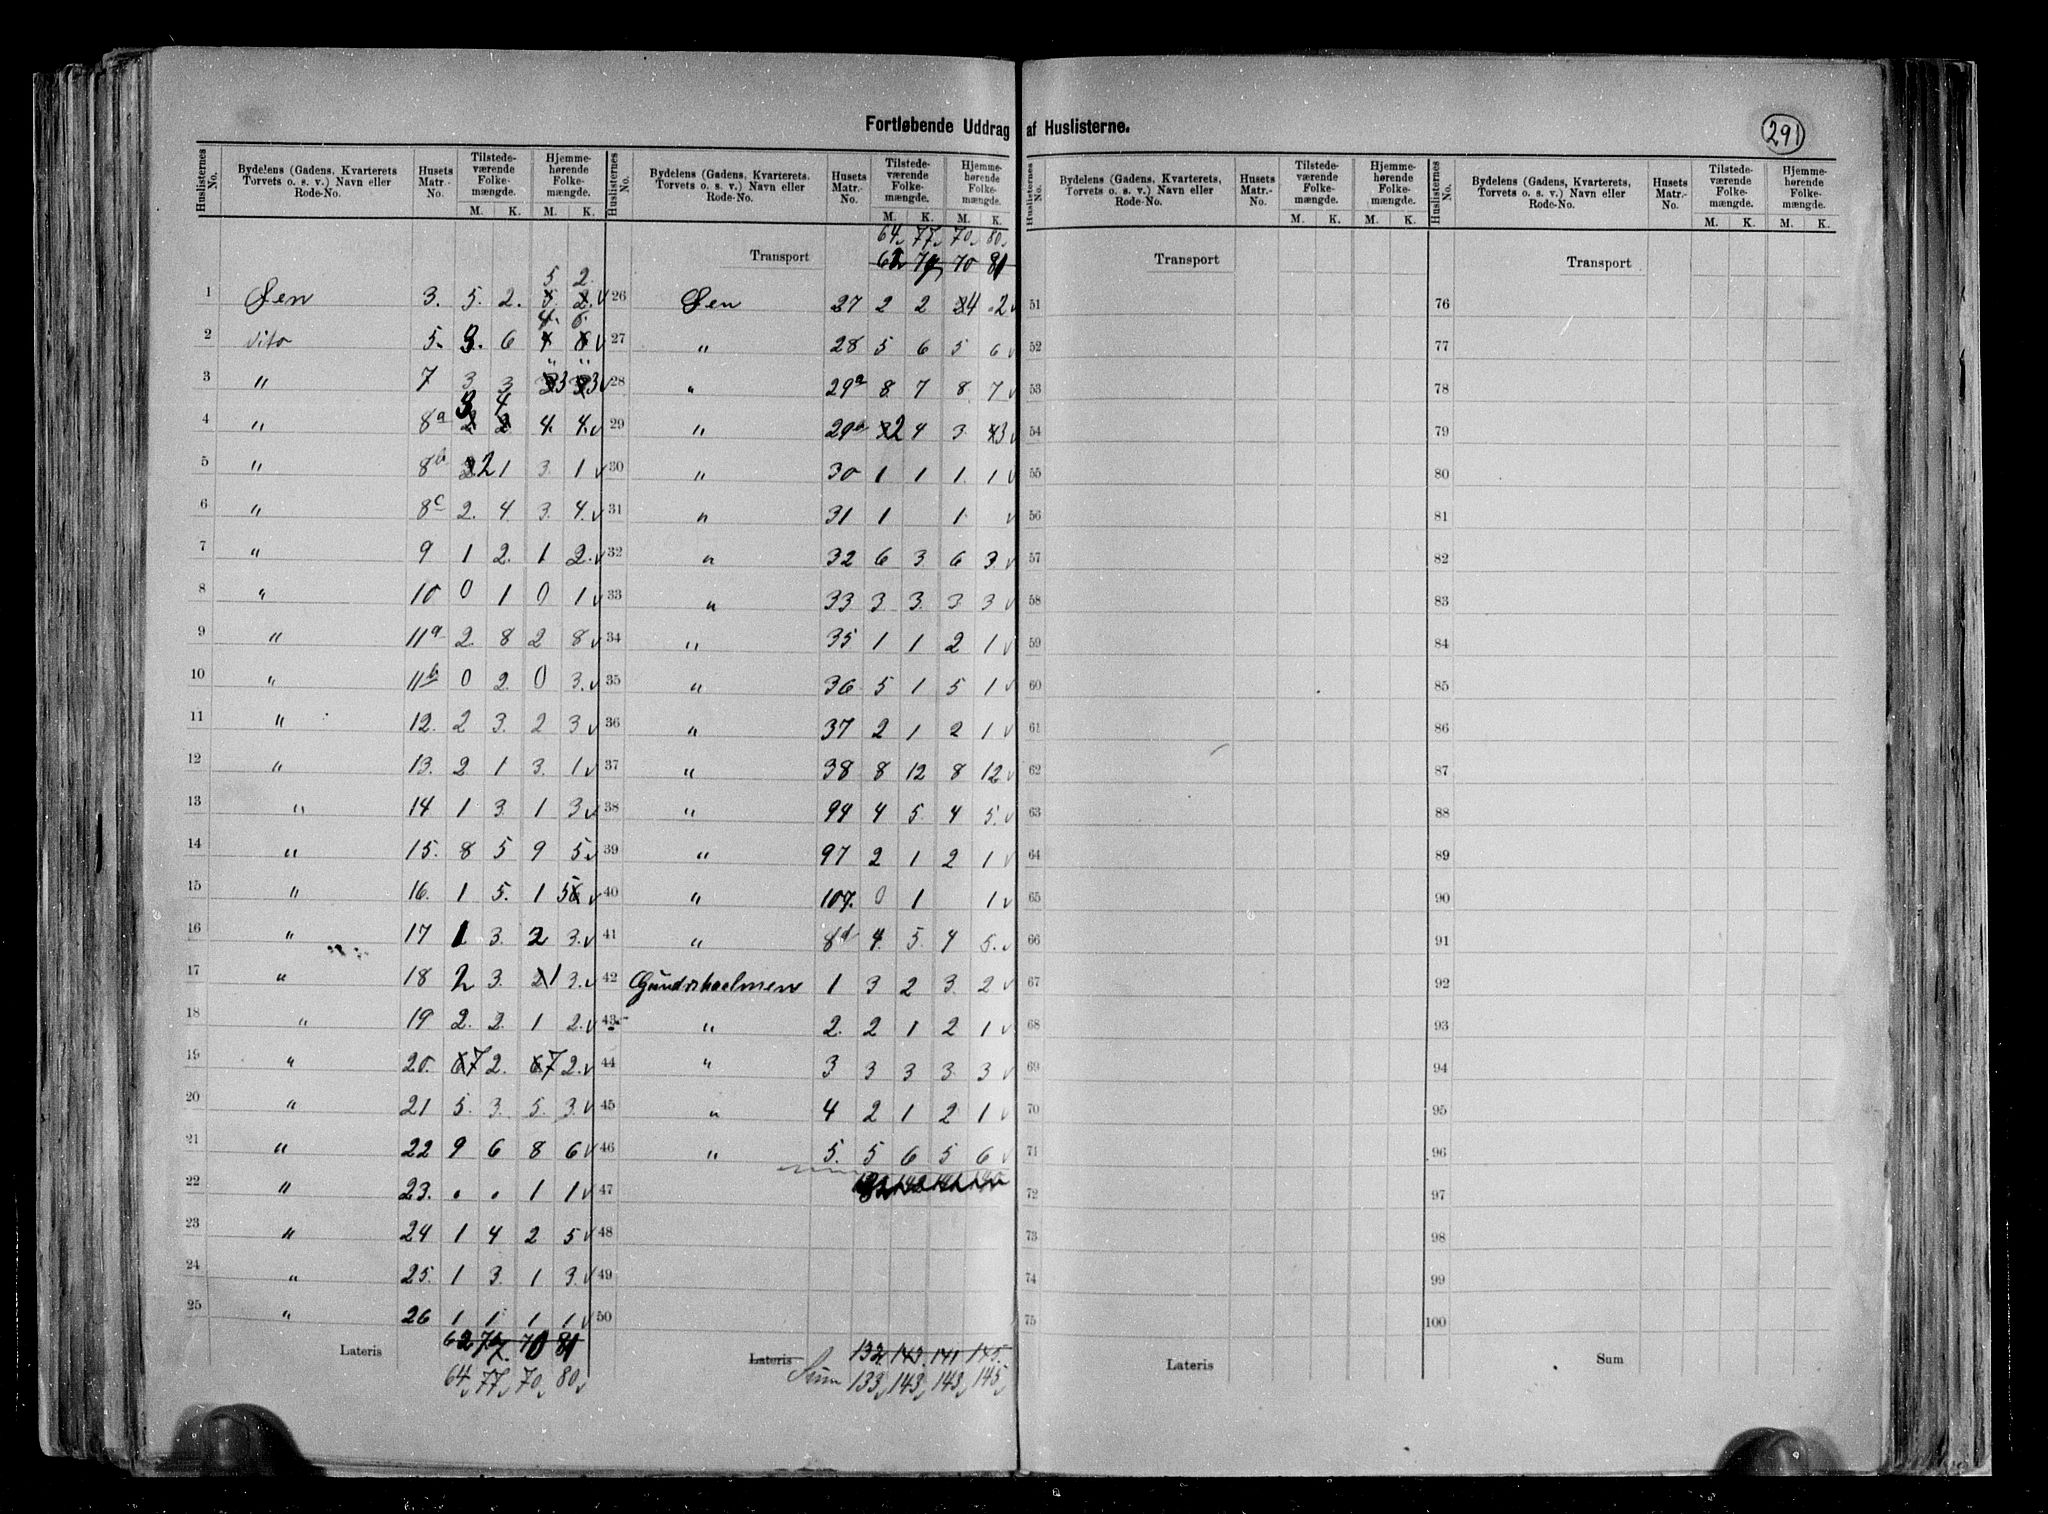 Fortløbende Uddrag af Huslisterne.
291
Huslisternes No. Bydelens (Gadens, Kvarterets Torvets o. s. v.) Navn eller Rode-No. Husets Matr.-No. Tilstedeværende Folkemængde. M. K. Hjemmehørende Folkemængde. M. K.
5 2.
1 Øen 3. 5. 2. 5 2. v
4. 6.
2 dito 5. 3. 6 4 6 v
3 " 7 3 3 3 3 v
3 4
4 " 8a 2 2 4. 4. v
5 " 8b 2 1 3. 1 v
6 " 8c 2. 4. 3. 4. v
7 " 9 1 2. 1 2. v
8 " 10 0 1 0 1 v
9 " 11a 2. 8 2 8 v
10 " 11b 0 2. 0 3. v
11 " 12. 2 3. 2 3 v
12 " 13. 2 1 3. 1 v
13 " 14 1 3. 1 3 v
14 " 15. 8 5 9 5. v
15 " 16. 1 5. 1 5 v
16 " 17 1 3. 2 3. v
17 " 18 2 3. 1 3. v
18 " 19 2. 2. 1 2. v
19 " 20. 7 2. 7 2. v
20 " 21 5. 3. 5. 3. v
21 " 22 9 6 8 6 v
22 " 23. . . 1 1 v
23 " 24 1 4 2 5 v
24 " 25. 1 3. 1 3. v
25 " 26 1 1 1 1 v
Lateris 62 77 70 81
64 v 77 v 70 v 80 v
Huslisternes No. Bydelens (Gadens, Kvarterets. Torvets o. s. v.) Navn eller Rode-No. Husets Matr.-No. Tilstedeværende Folkemængde. M. K. Hjemmehørende Folkemængde. M. K.
64 v 77 v 70 v 80 v
Transport 62 77 70 81
26 Øen 27 2 2 4 2 v
27 " 28 5 6 5 6 v
28 " 29a 8 7 8. 7 v
29 " 29b 2 4 3. 3 v
30 " 30 1 1 1. 1 v
31 " 31 1 1. v
32 " 32 6 3. 6 3. v
33 " 33 3. 3. 3. 3 v
34 " 35 1 1 2 1 v
35 " 36 5 1 5 1 v
36 " 37 2 1 2 1 v
37 " 38 8 12 8 12 v
38 " 94 4 5. 4 5. v
39 " 97 2 1 2 1 v
40 " 107. 0 1 1 v
41 " 8d 4. 5. 4 5. v
42 Gundersholmen 1 3 2 3. 2 v
43 " 2. 2 1 2 1 v
44 " 3 3 3 3 3 v
45 " 4 2 1 2 1 v
46 " 5. 5 6 5 6 v
47
48
49
50
Lateris 132. 143. 141 145.
Sum 133 v 143 v 143 v 145 v
Huslisternes No. Bydelens (Gadens, Kvarterets, Torvets o. s. v.) Navn eller Rode-No. Husets Matr.-No. Tilstedeværende Folkemængde. M. K. Hjemmehørende Folkemængde. M. K.
Transport
51
52
53
54
55
56
57
58
59
60
61
62
63
64
65
66
67
68
69
70
71
72
73
74
75
Lateris
Huslisternes No. Bydelens (Gadens, Kvarterets, Torvets o. s. v.) Navn eller Rode-No. Husets Matr.-No. Tilstedeværende Folkemængde. M. K. Hjemmehørende Folkemængde. M. K.
Transport
76
77
78
79
80
81
82
83
84
85
86
87
88
89
90
91
92
93
94
95
96
97
98
99
100
Sum